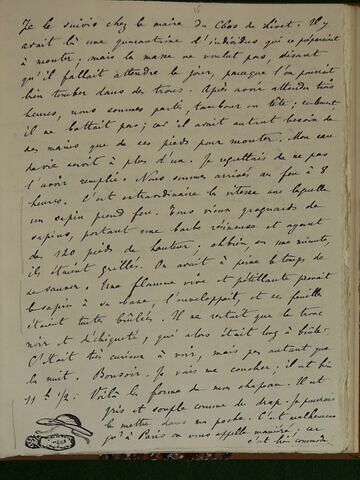 Je le suivis chez le maire du Clos de Livet. Il y
avait là une quarantaine d'individus qui se préparaient
à monter ; mais la masse ne voulut pas, disant
qu'il fallait attendre le jour, parce que l'on pourrait
bien tomber dans des trous. Après avoir attendu trois
heures, nous sommes parti, tambour en tête ; seulement
il ne battait pas ; car il avait autant besoin de
ses mains que de ses pieds pour monter. Mon eau
de vie servit à plus d'un. Je regrettais de ne pas
l'avoir remplie. Nous sommes arrivés au feu à 8
heures. C'est extraordinaire la vitesse avec laquelle
un sapin prend feu. Tous vieux grognards de
sapins, portant une barbe résineuse et ayant
de 120 pieds de hauteur ; eh bien, en une minute,
ils étaient grillés. On avait à peine le temps de
se sauver. Une flamme vive et pétillante prenait
le sapin à sa base, l'enveloppait, et ses feuilles
étaient toute brûlés. Il ne restait que le tronc
noir et déchiqueté, qui alors était long à brûler.
C'était très curieux à voir, mais pas autant que
la nuit. Bonsoir. Je vais me coucher ; il est bien
11 h 1/2. Voilà la forme de mon chapeau. Il est
gris et souple comme du drap. Je pourrais
le mettre dans ma poche. C'est malheureux
qu'à Paris on vous appelle maniéré ; car
c'est bien commode.